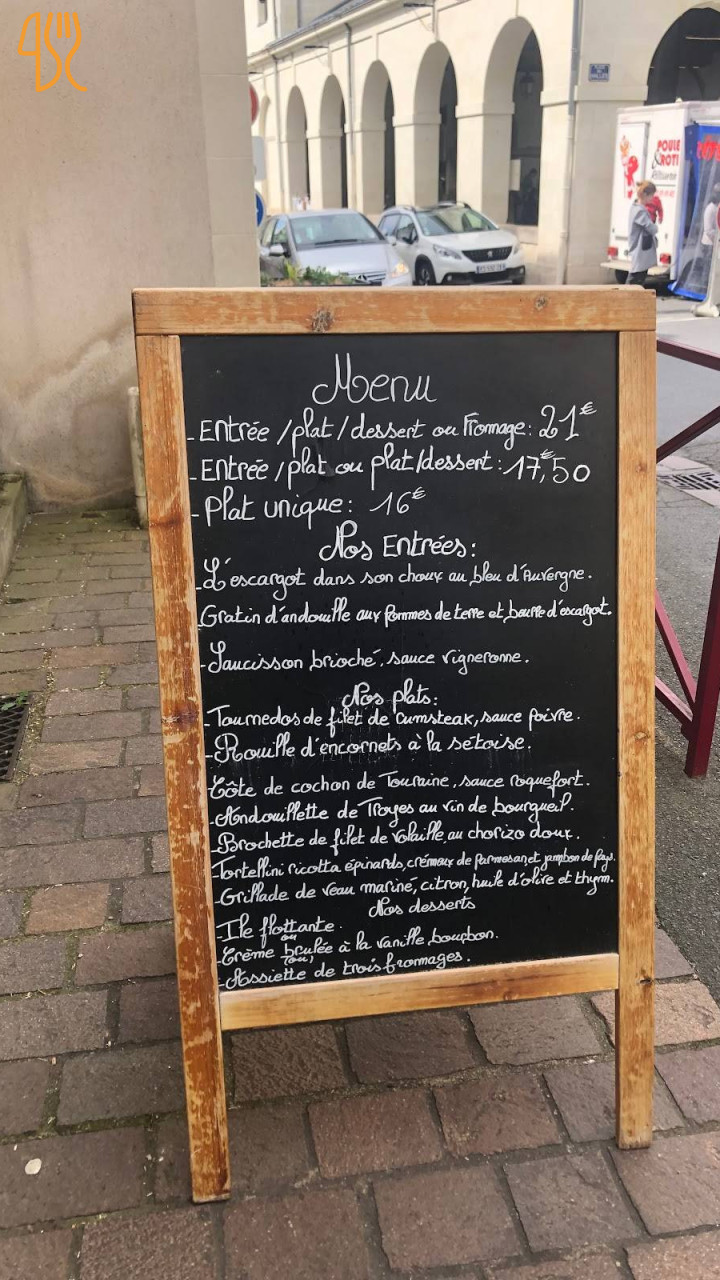 POULE
& ROTI
Rôtisserie
Menu
- Entrée /plat / dessert ou Fromage : 21€
- Entrée /plat ou plat/dessert : 17,€50
- Plat unique : 16€
Nos Entrées :
- L'escargot dans son choux au bleu d'Auvergne.
- Gratin d'andouille aux pommes de terre et beurre d'escargot.
- Saucisson brioché, sauce vigneronne.
Nos plats :
- Tournedos de filet de rumsteak, sauce poivre.
- Rouille d'encornets à la sétoise.
- Côte de cochon de Touraine, sauce roquefort.
- Andouillette de Troyes au vin de bourgueil.
- Brochette de filet de volaille au chorizo doux.
- Tortellini ricotta épinards, crémeux de parmesan, et jambon de pays.
- Grillade de veau mariné, citron, huile d'olive et thym.
Nos desserts
- Ile flottante.
ou
- Crème brulée à la vanille bourbon.
(ou)
- Assiette de trois fromages.